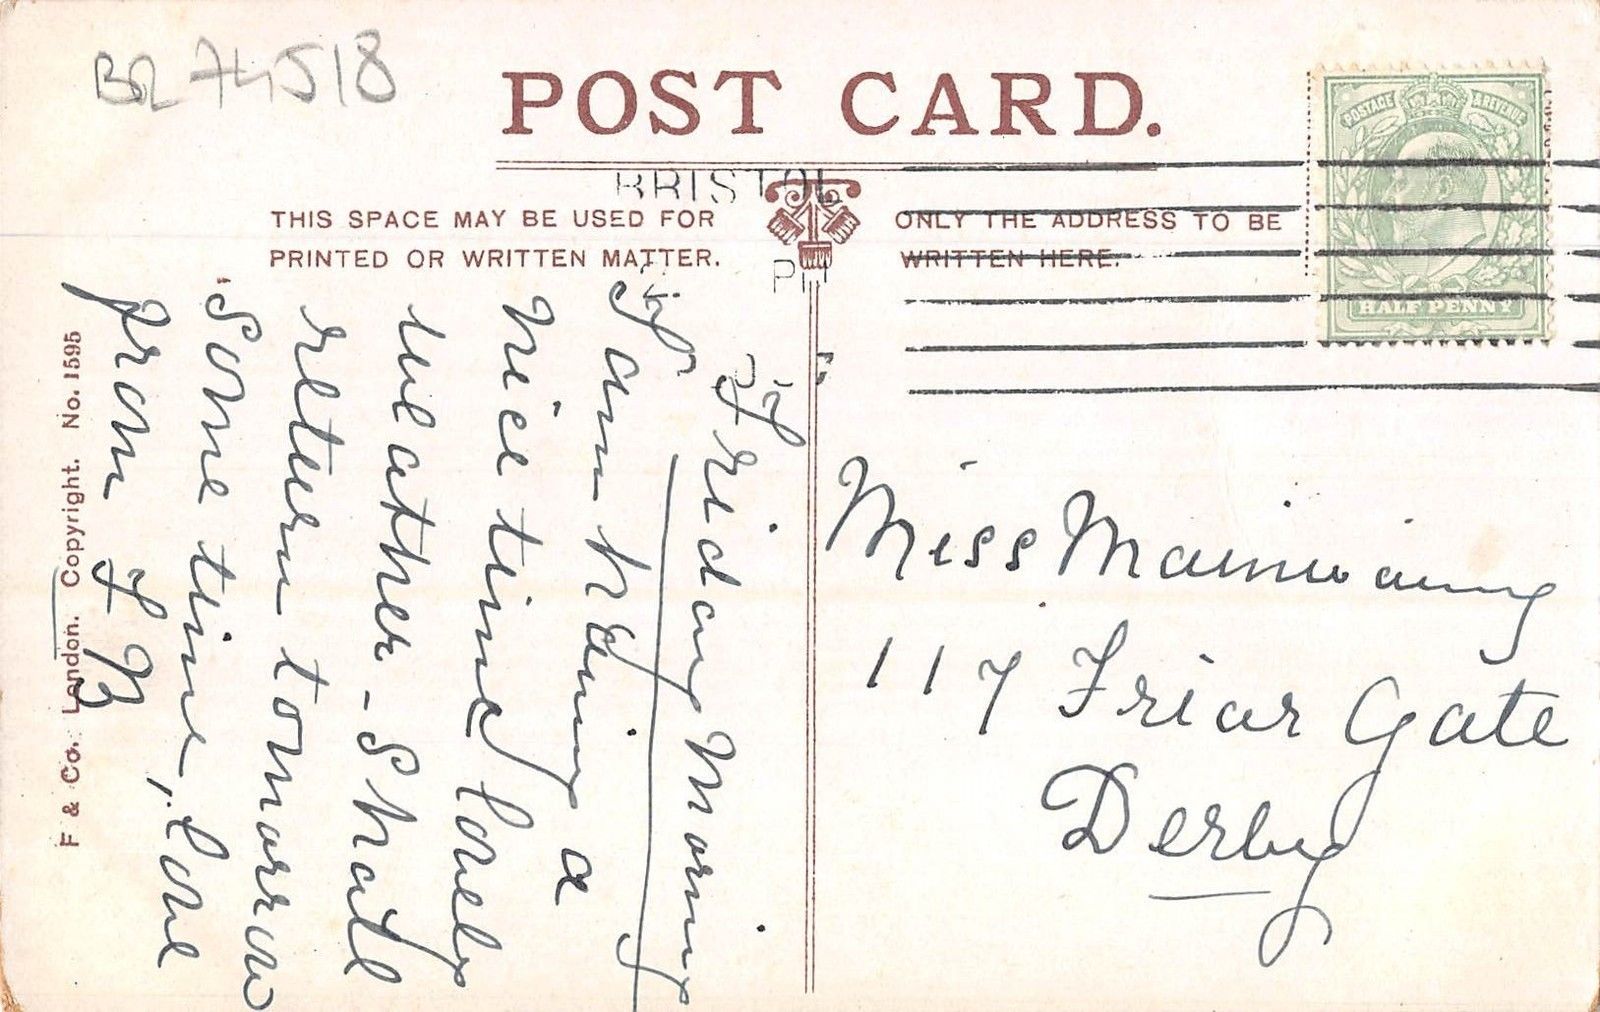 BR 74518
POST CARD.
BRISTOL
THIS SPACE MAY BE USED FOR
PRINTED OR WRITTEN MATTER.
ONLY THE ADDRESS TO BE
WRITTEN HERE.
POSTAGE & REVENUE
HALF PENNY
Friday Morning
I am having a
nice time lovely
weather - Shall
return tomorrow
Some time, love
from F B
Miss Mainwaring
117 Friar Gate
Derby
F & Co. London. Copyright. No. 1595